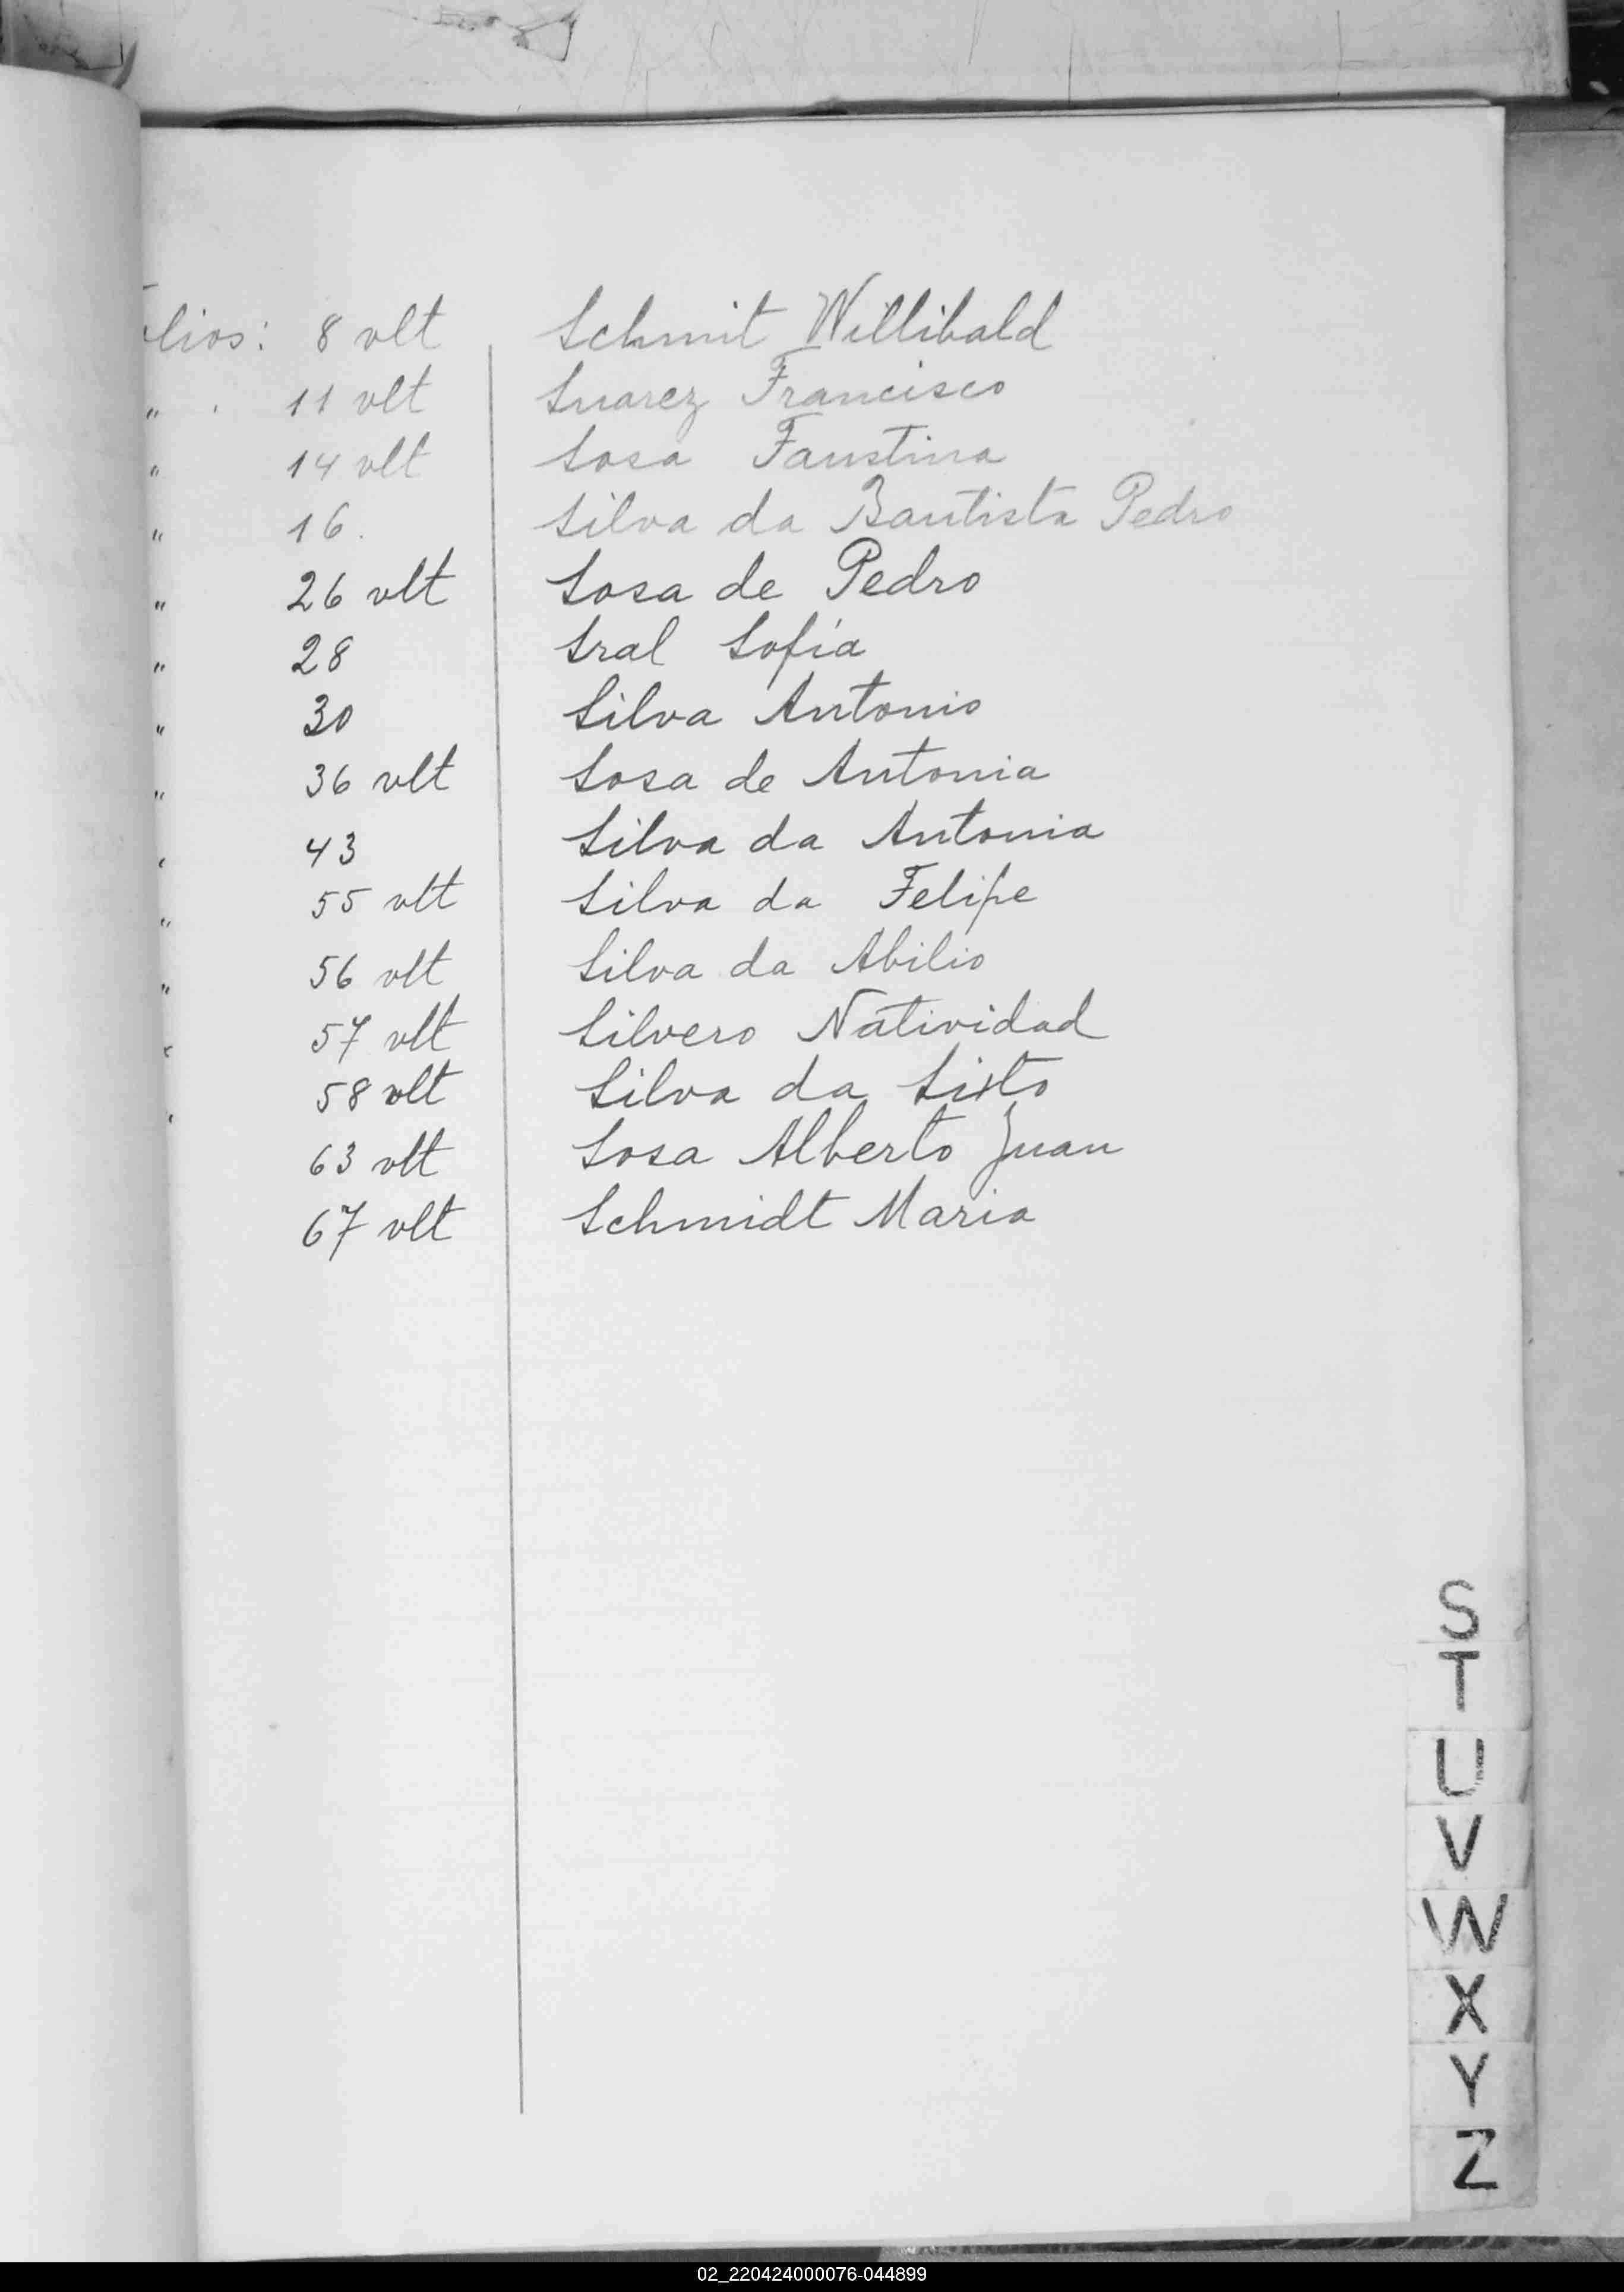 Folios: 8 vlt Schmit Willibald
" . 11 vlt Suarez Francisco
" 14 vlt Sosa Faustina
" 16. Silva da Bautista Pedro
" 26 vlt Sosa de Pedro
" 28 Sral Sofía
" 30 Silva Antonio
" 36 vlt Sosa de Antonia
" 43 Silva da Antonia
" 55 vlt Silva da Felipe
" 56 vlt Silva da Abilio
" 57 vlt Silvero Natividad
" 58 vlt Silva da Sixto
63 vlt Sosa Alberto Juan
67 vlt Schmidt Maria
S
T
U
V
W
X
Y
Z
02_220424000076-044899